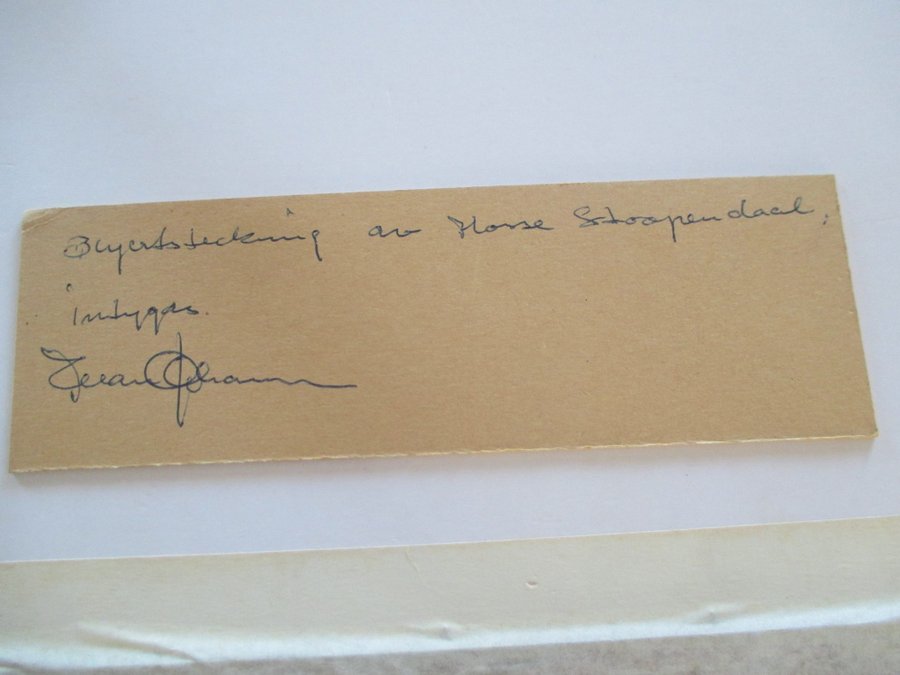 Blyertsteckning av Mosse Stoopendaal,
intygas.